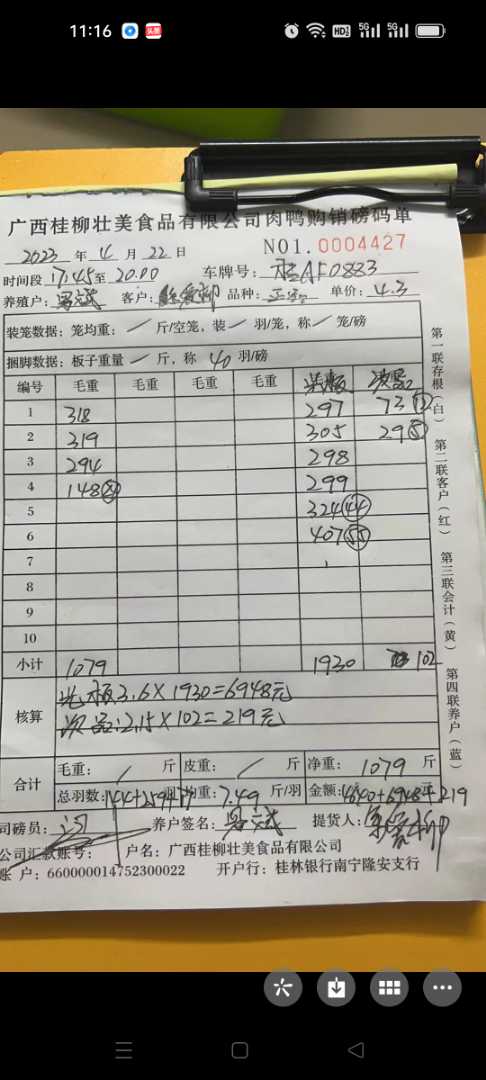 11:16
头条
HD 5G 5G
广西桂柳壮美食品有限公司肉鸭购销磅码单
2023 年 4 月 22 日 NO1. 0004427
时间段 17.45至 20.00 车牌号: 桂AF0883
养殖户: 客户: 品种: 单价: 4.3
装笼数据: 笼均重: / 斤/空笼, 装 / 羽/笼, 称 / 笼/磅
捆脚数据: 板子重量 / 斤, 称 40 羽/磅
编号 毛重 毛重 毛重 毛重 次品
1 318 297 73
2 319 305 29 ⑤
3 294 298
4 148 299
5 324 44
6 407 55
7
8
9
10
小计 1079 1930 102
核算 光板3.6×1930=6948元
次品:2.15×102=219元
合计 毛重: / 斤 皮重: / 斤 净重: 1079 斤
总羽数: 144+259 均重: 7.49 斤/羽 金额: 4640+6948+219
司磅员: 养户签名: 提货人:
公司汇款账号: 户名: 广西桂柳壮美食品有限公司
账 户: 660000014752300022 开户行: 桂林银行南宁隆安支行
第一联存根(白) 第二联客户(红) 第三联会计(黄) 第四联养户(蓝)